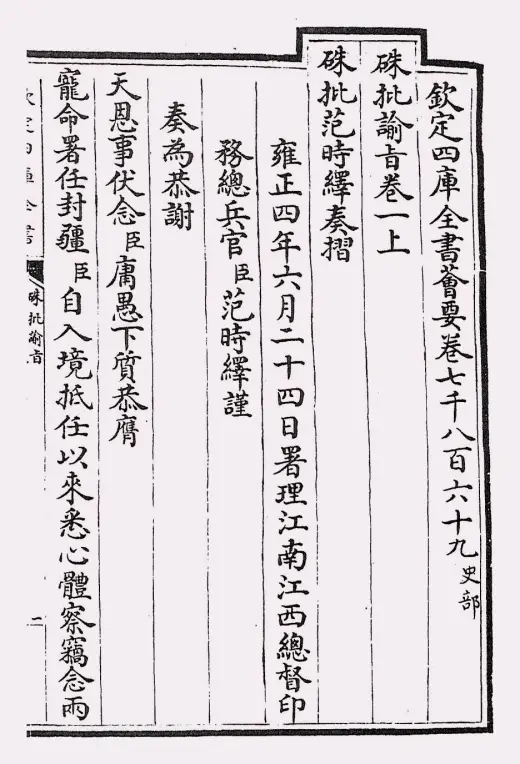 欽定四庫全書薈要卷七千八百六十九史部
硃批諭旨卷一上
硃批范時繹奏摺
雍正四年六月二十四日署理江南江西總督印
務總兵官臣范時繹謹
奏為恭謝
天恩事伏念臣庸愚下質恭膺
寵命署任封疆臣自入境抵任以來悉心體察竊念兩
欽定四庫全書
硃批諭旨
一